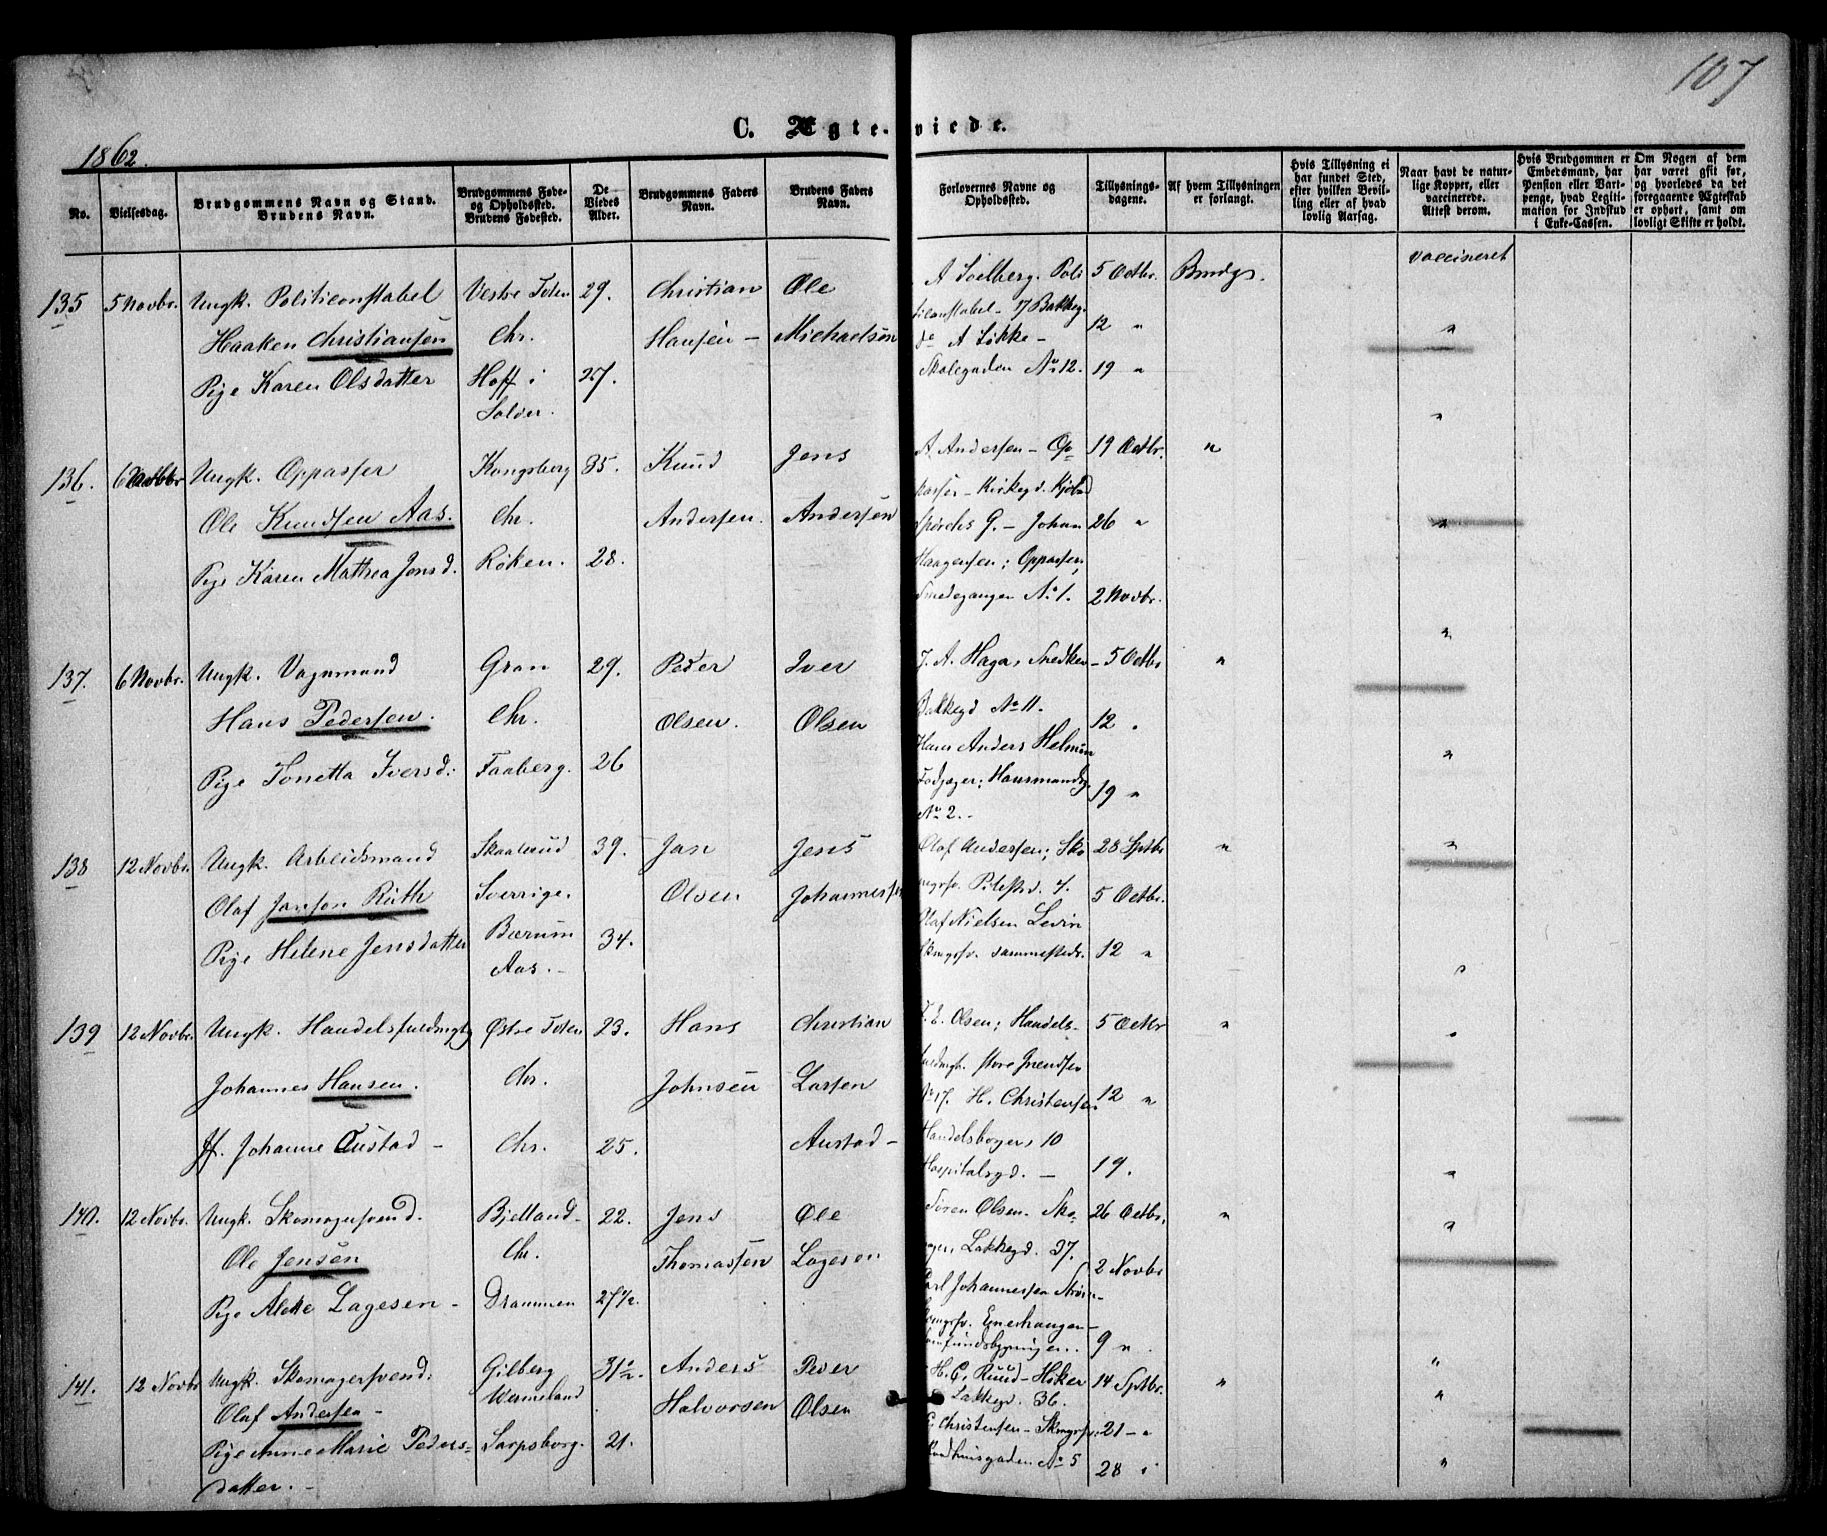 107
C. Ægteviede.
1862.
No.
Vielsesdag.
Brudgommens Navn og Stand.
Brudens Navn.
Brudgommens Føde-
og Opholdssted.
Brudens Fødested.
De
Viedes
Alder.
Brudgommens Faders
Navn.
Brudens Faders
Navn.
Forlovernes Navne og
Opholdssted.
Tillysnings-
dagene.
Af hvem Tillysningen
er forlangt.
Hvis Tillysning ei
har fundet Sted,
efter hvilken Bevil-
ling eller af hvad
lovlig Aarsag.
Naar havt de natur-
lige Kopper, eller
vaccinerede.
Attest derom.
Hvis Brudgommen er
Embedsmand, har
Pension eller Vart-
penge, hvad Legiti-
mation for Indskud
i Enke-Cassen.
Om Nogen af dem
har været gift før,
og hvorledes da det
foregaaende Ægteskab
er ophørt, samt om
lovligt Skifte er holdt.
135 5 Novbr. Ungk. Politiconstabel Vestre Toten 29. Christian Ole A Soelberg. Poli 5 Octbr. Brudg. vaccineret
Haaken Christiansen Chr. Hansen - Michaelsen ticonstabel - 17 Bakkeg. 12 "
A Løkke -
Pige Karen Olsdatter Hoff i 27. Skolegaden No 12. 19 "
Solør.
136. 6 Novbr Ungk. Oppasser Kongsberg 35. Knud Jens A. Andersen - Op 19 Octbr. "
passer - Kirkegd.
Ole Knudsen Aas. Chr. Andersen. Andersen G. - Johan 26 "
Pige Karen Mathea Jensd. Røken. 28. Haagensen; Oppasser,
Smedegangen No 1. 2 Novbr.
137. 6 Novbr. Ungk. Vognmand Gran 29. Peder Iver J. A. Haga, Snedker - 5 Octbr "
Hans Pedersen. Chr. Olsen. Olsen Bakkegd No 11. 12 "
Hans Anders
Pige Tonetta Iversd: Faaberg. 26 Hausmandsg. 19 "
No 2.
138 12 Novbr. Ungk. Arbeidsmand 39. Jan Jens Olaf Andersen; Sko 28 Sptbr "
Olaf Janson Rüth Sverrige. Olsen Johannessen Pilestrd. 7. 5 Octbr.
Olaf Nielsen Levin
Pige Helene Jensdatter Bærum 34. sammesteds. 12 "
Aas. -
139 12 Novbr. Ungk. Handelsfuldmægtg Østre Toten 23. Hans Christian J. E. Olsen; Handels- 5 Octbr "
fuldmgt. store Grændsen
Johannes Hansen. Chr. Johnsen Larsen No 17. H. Christensen 12 "
Jf. Johanne Austad - Chr. 25. Austad - Handelsborger, 10
Hospitalsgd. - 19.
140. 12 Novbr. Ungk. Skomagersvend. Bjelland- 22. Jens Ole Søren Olsen. Sko- 26 Octbr. "
Ole Jensen Chr. Thomassen Lagesen mager, Lakkegd. 37. 2 Novbr
Carl Johannessen
Pige Aleke Lagesen - Drammen 27 1/2. Enerhaugen -
Samfundsbygningen. 9 "
141. 12 Novbr Ungk. Skomagersvend: Gilberg 31 1/2. Anders Peder H. C. Ruud - Høker 14 Sptbr. "
Olaf Andersen - Wermeland Halvorsen Olsen Lakkegd. 36.
Pige Anne Marie Peders- Sarpsborg. 21. Christensen - Skomgrsv: 21 - "
datter. - Raadhuusgaden No 5 28 "